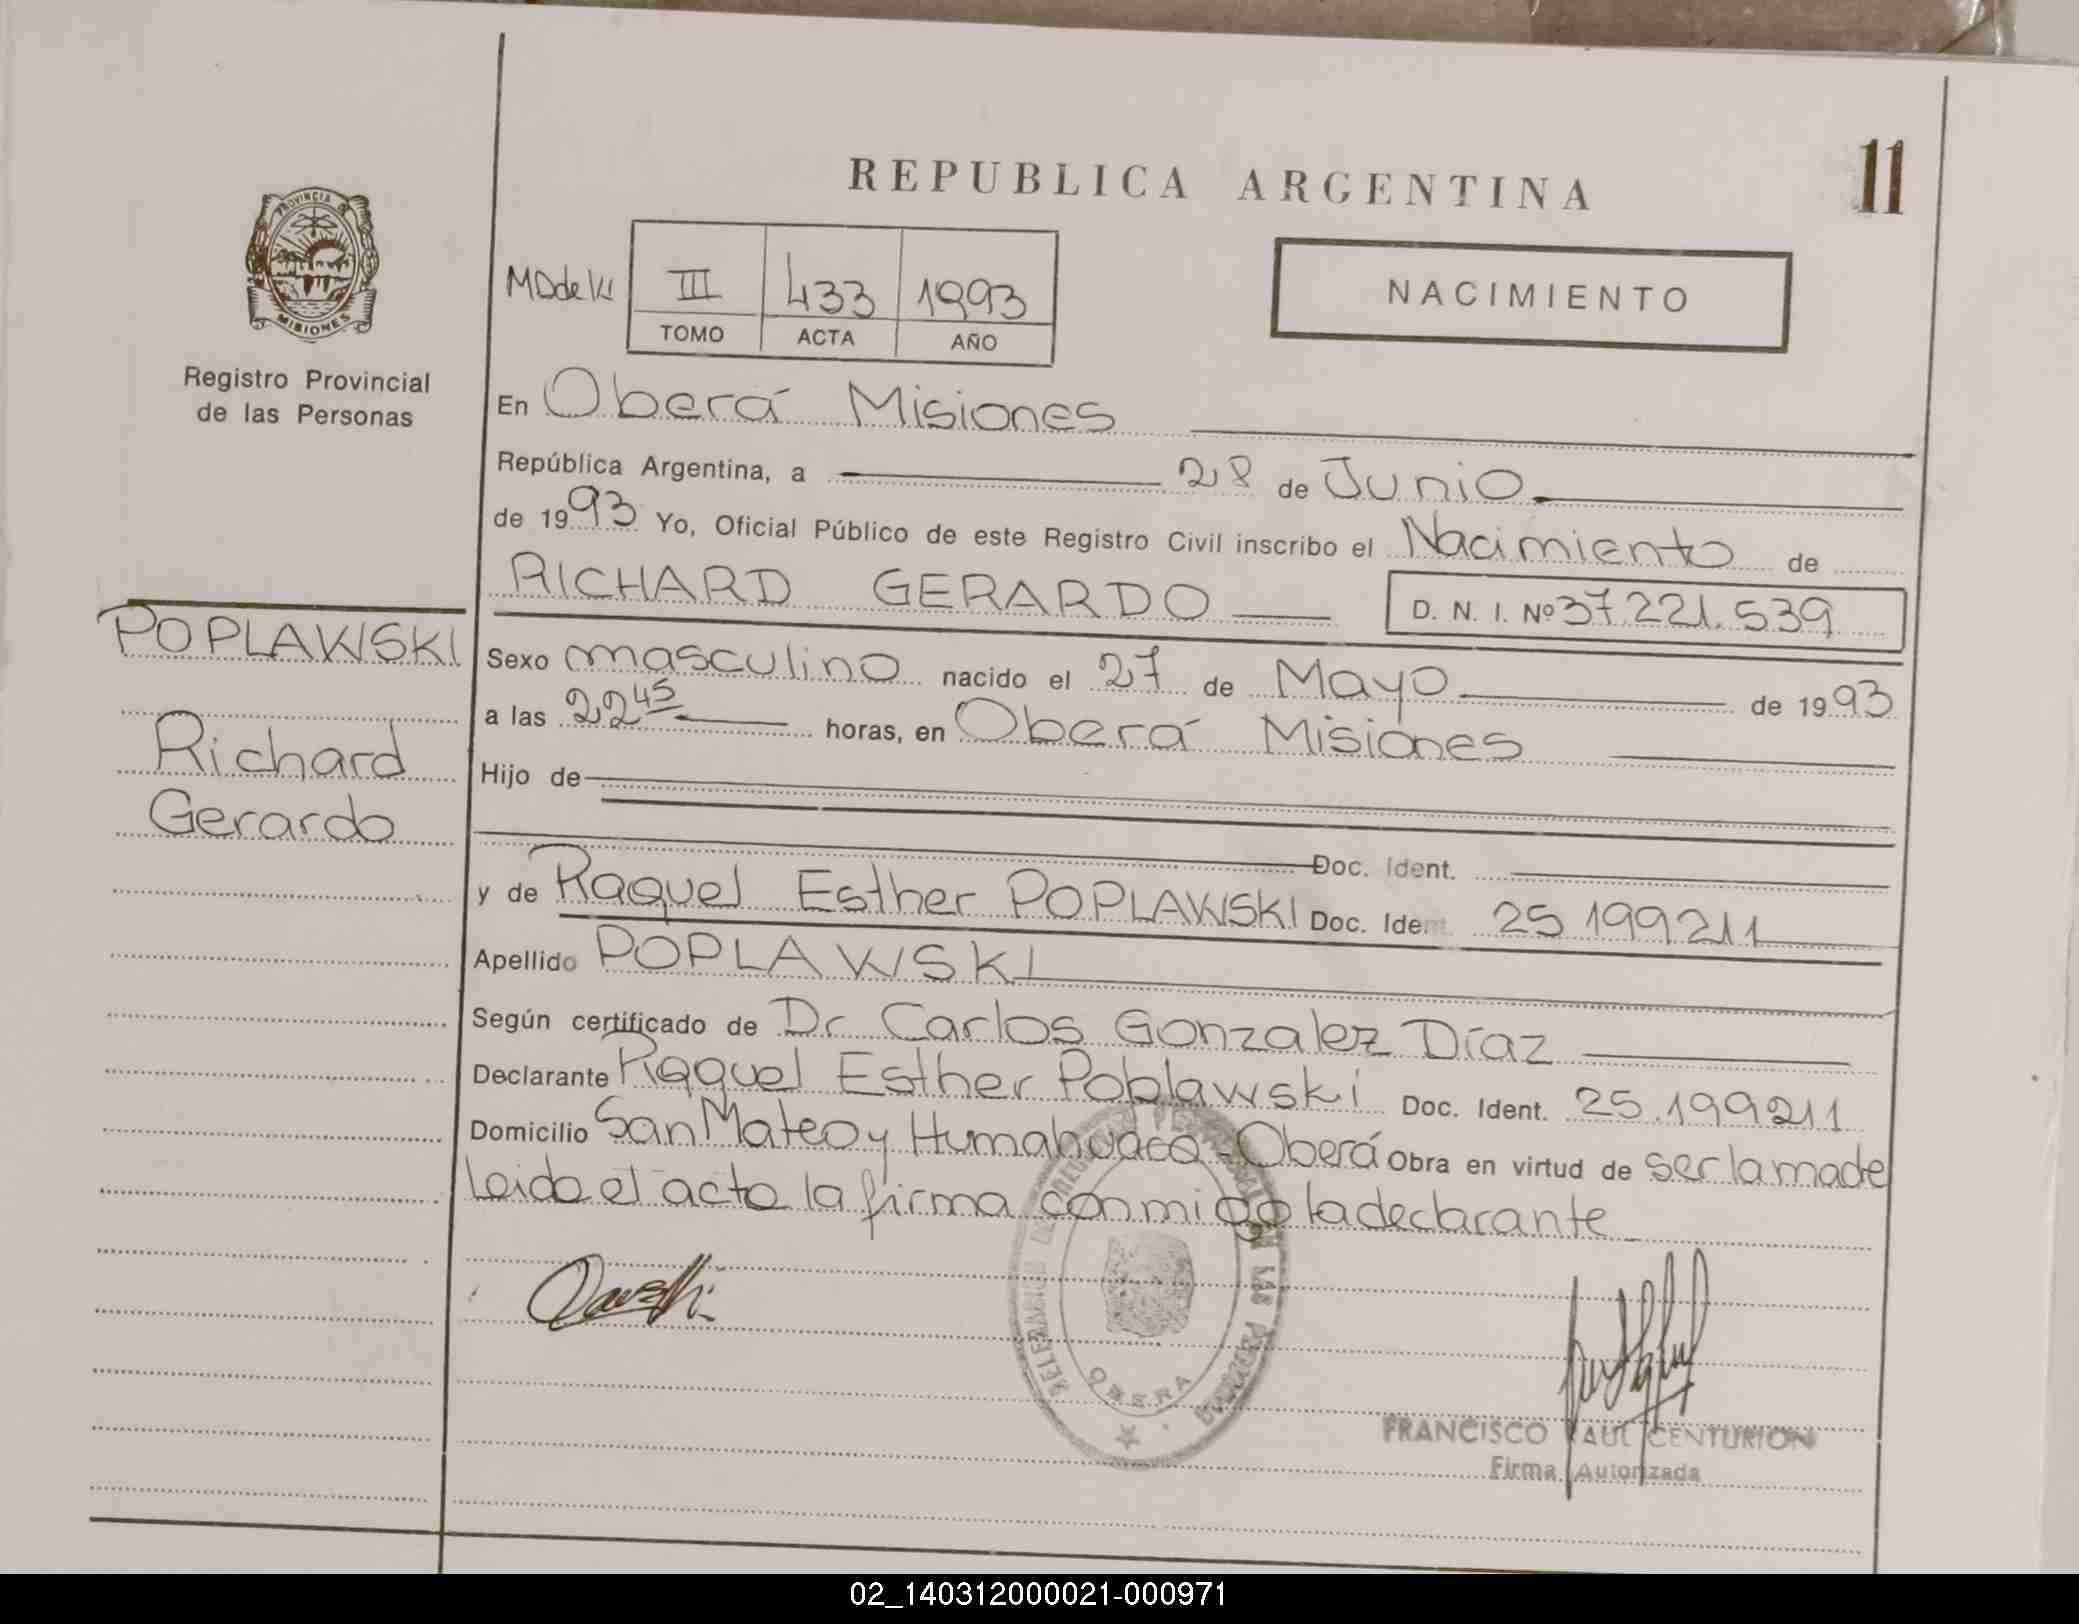 REPUBLICA ARGENTINA
11
PROVINCIA DE
MISIONES
Registro Provincial
de las Personas
III 433 1993
TOMO ACTA AÑO
NACIMIENTO
En Oberá Misiones
República Argentina, a 28 de Junio
de 1993 Yo, Oficial Público de este Registro Civil inscribo el Nacimiento de
RICHARD GERARDO D. N. I. Nº 37.221.539
POPLAWSKI
Richard
Gerardo
Sexo masculino nacido el 27 de Mayo de 1993
a las 22 45 horas, en Oberá Misiones
Hijo de
Doc. Ident.
y de Raquel Esther POPLAWSKI Doc. Ident. 25 199211
Apellido POPLAWSKI
Según certificado de Dr Carlos Gonzalez Díaz
Declarante Raquel Esther Poplawski Doc. Ident. 25.199211
Domicilio San Mateo y Humahuaca - Oberá Obra en virtud de ser la madre
Leida el acta la firma conmigo la declarante
OBERA
FRANCISCO RAUL CENTURION
Firma Autorizada
02_140312000021-000971